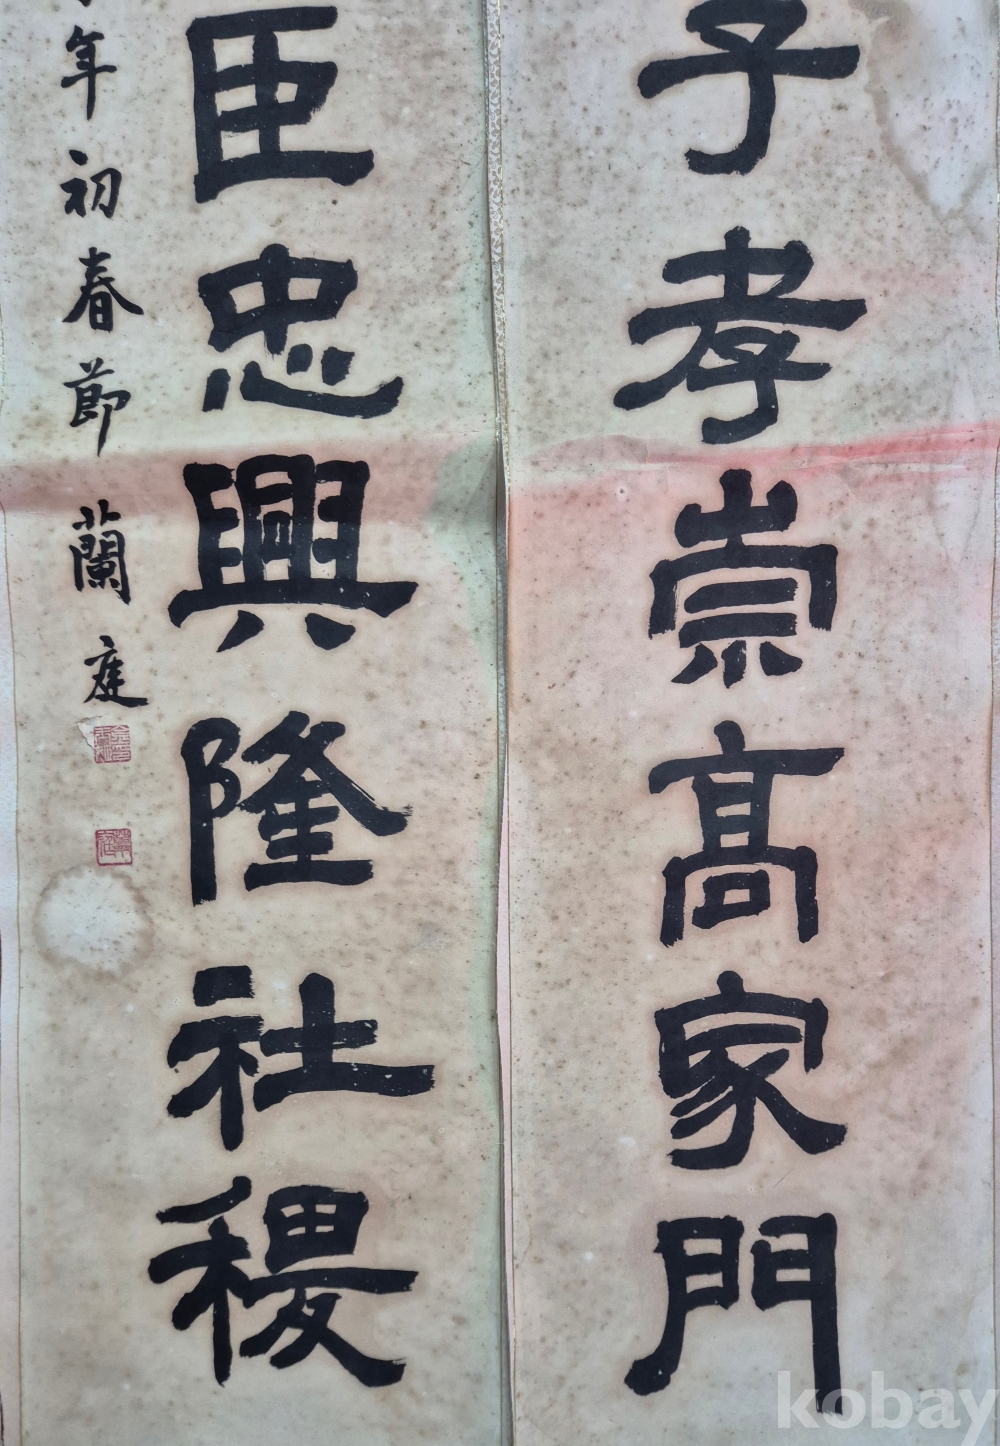 子孝崇高家門
臣忠興隆社稷
年初春節 蘭庭
kobay